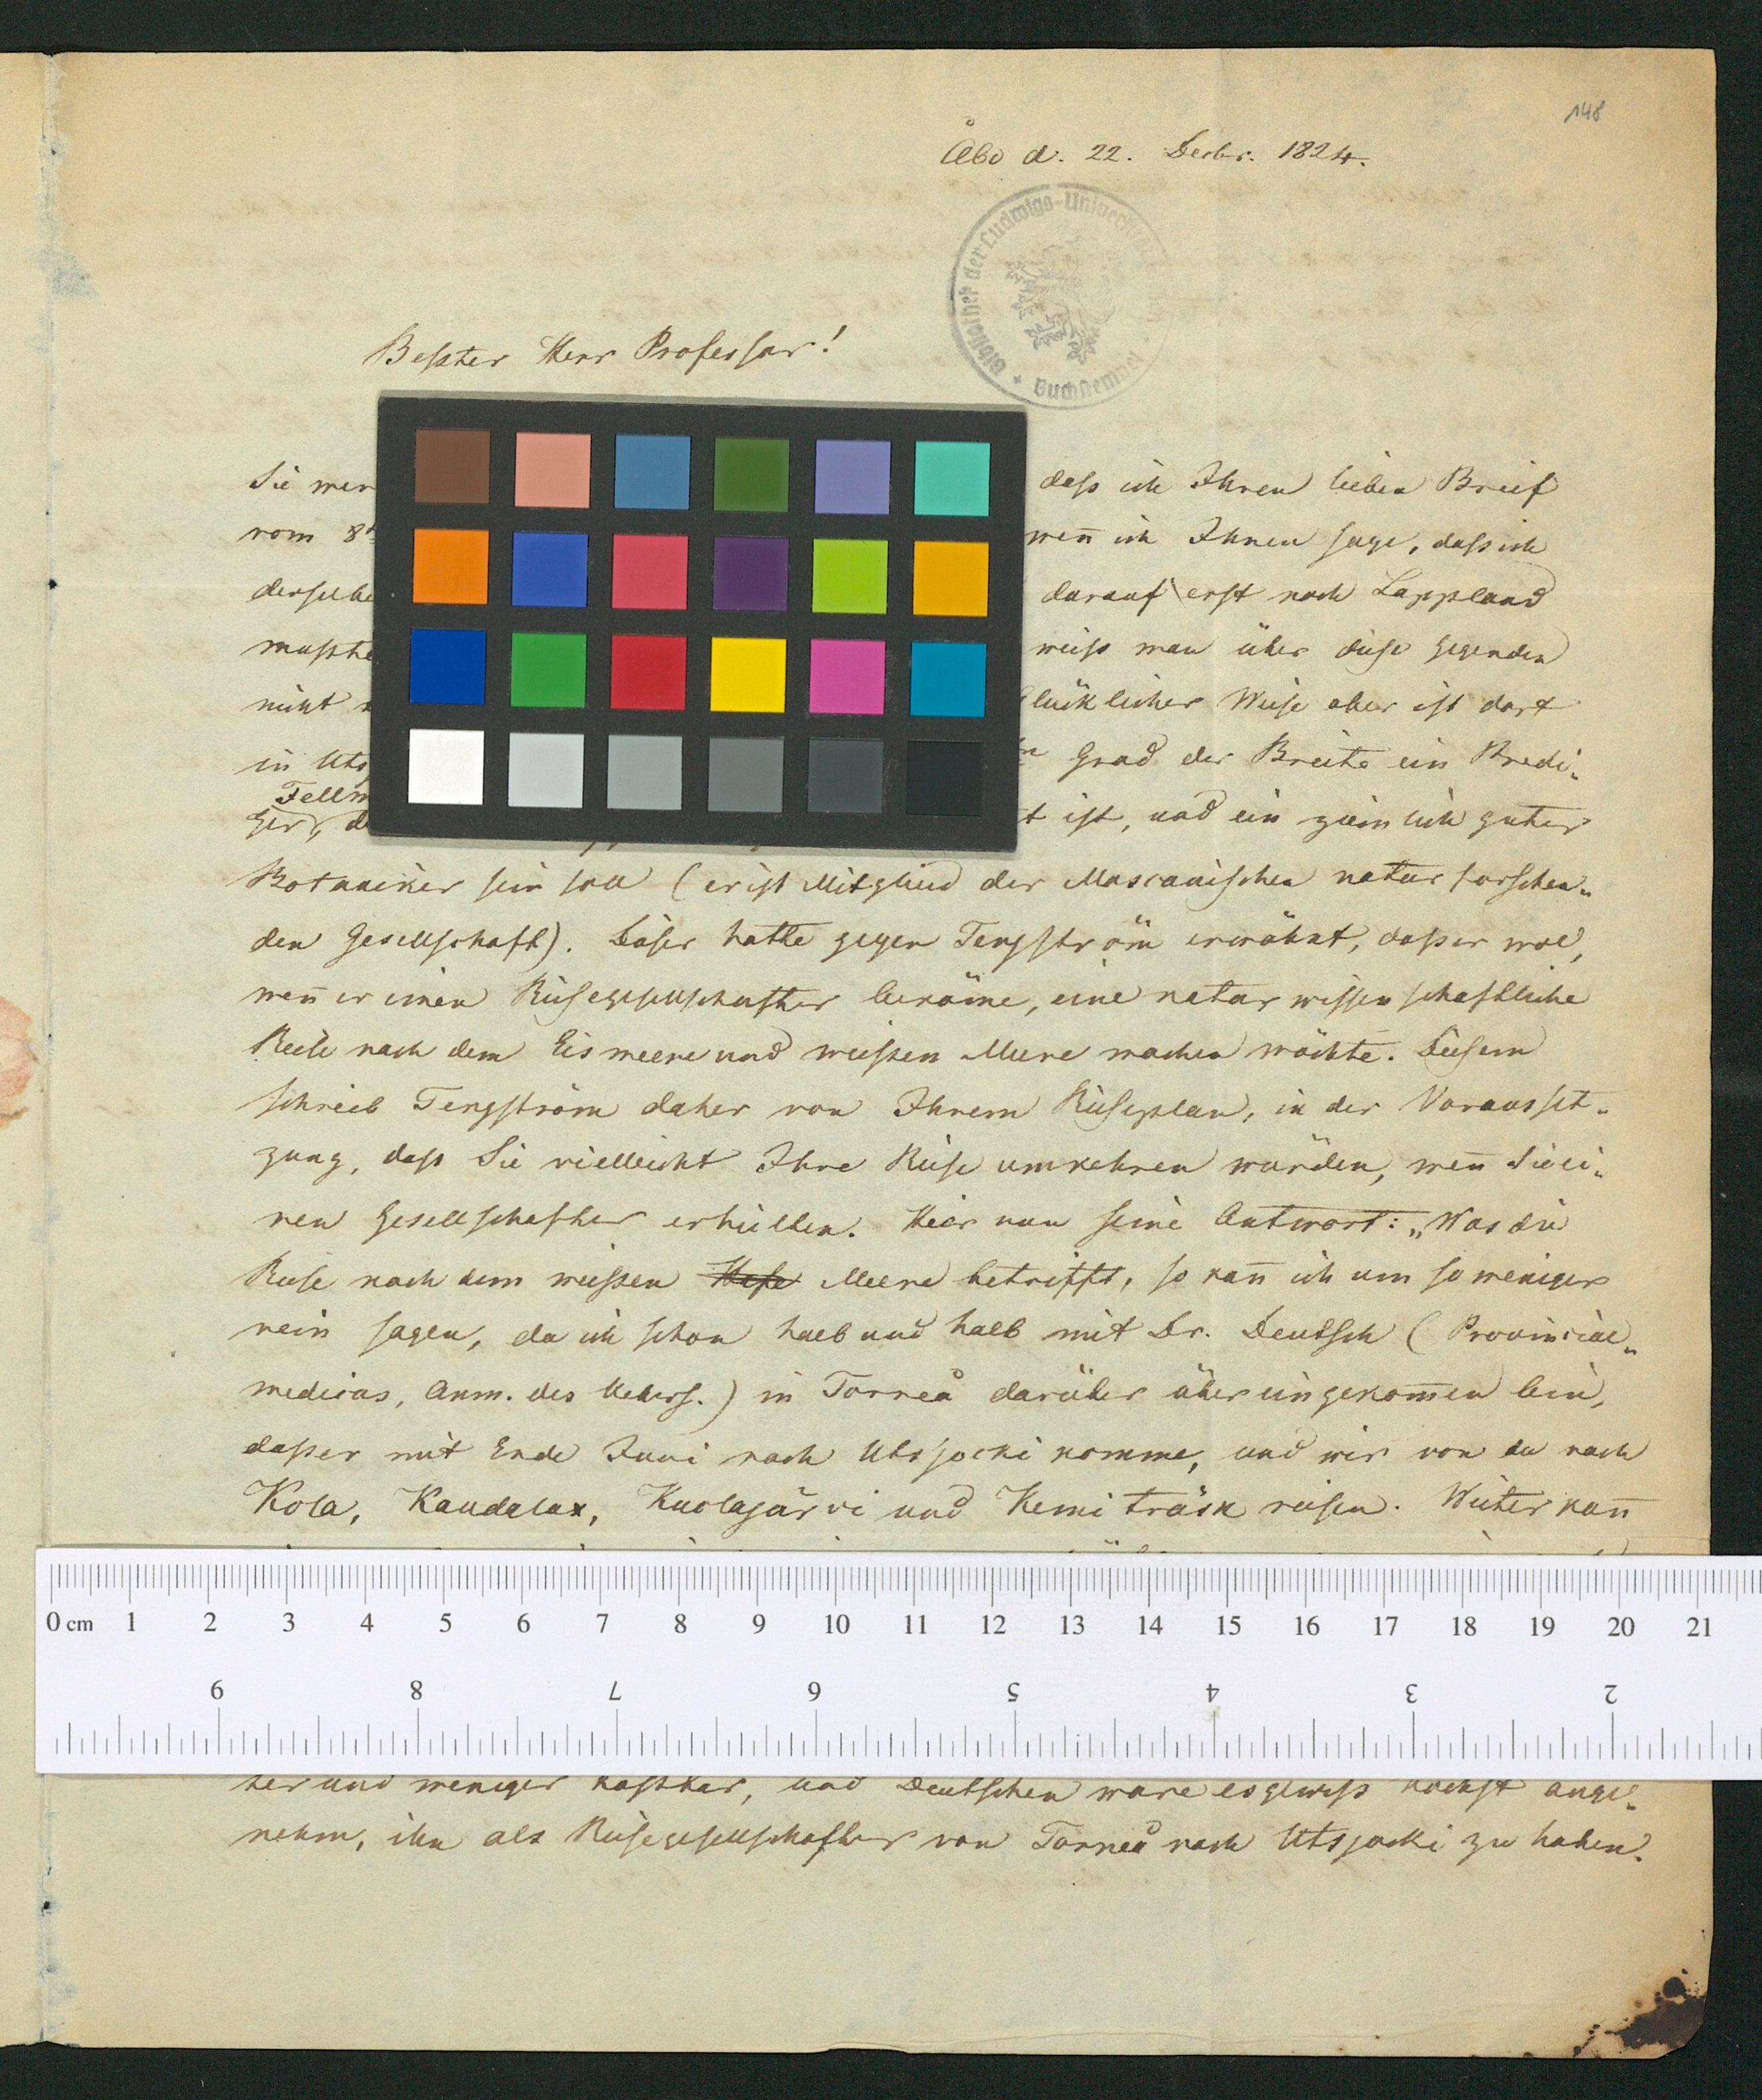 148
Åbo d. 22. Decbr. 1824.
Bibliothek der Ludwigs-Universität
Buchstempel
Bester Herr Professor!
Sie wer dass ich Ihren lieben Brief
vom 8t wen̄ ich Ihnen sage, dass ich
derselbe darauf erst nach Lappland
musste weiss man über diese Gegenden
nicht Glücklicher Weise aber ist dort
in Uts Grad der Breite ein Predi„
Fellm
ger, d t ist, und ein ziemlich guter
Botaniker sein soll (er ist Mitglied der Moscauischen naturforschen„
den Gesellschaft). Dieser hatte gegen Tengström erwähnt, dass er wol,
wen̄ er einen Reisegesellschafter bekäme, eine naturwissenschaftliche
Reise nach dem Eismeere und weissen Meere machen möchte. Diesem
schrieb Tengström daher von Ihrem Reiseplan, in der Vorausset„
zung, dass Sie vielleicht Ihre Reise umkehren würden, wen̄ Sie ei„
nen Gesellschafter erhielten. Hier nun seine Antwort: „Was die
Reise nach dem weissen Meere betrifft, so kan̄ ich um so weniger
nein sagen, da ich schon halb und halb mit Dr. Deutsch (Provincial„
medicus, Anm. des Uebers.) in Torneå darüber übereingekom̄en bin,
dass er mit Ende Juni nach Utsjocki komme, und wir von da nach
Kola, Kandalax, Kuolajärvi und Kemi träsk reisen. Weiter kan̄
0 cm 1 2 3 4 5 6 7 8 9 10 11 12 13 14 15 16 17 18 19 20 21
9 8 7 6 5 4 3 2
ter und weniger kostbar, und Deutschen wäre es gewiss höchst ange„
nehm, ihn als Reisegesellschafter von Torneå nach Utsjocki zu haben.